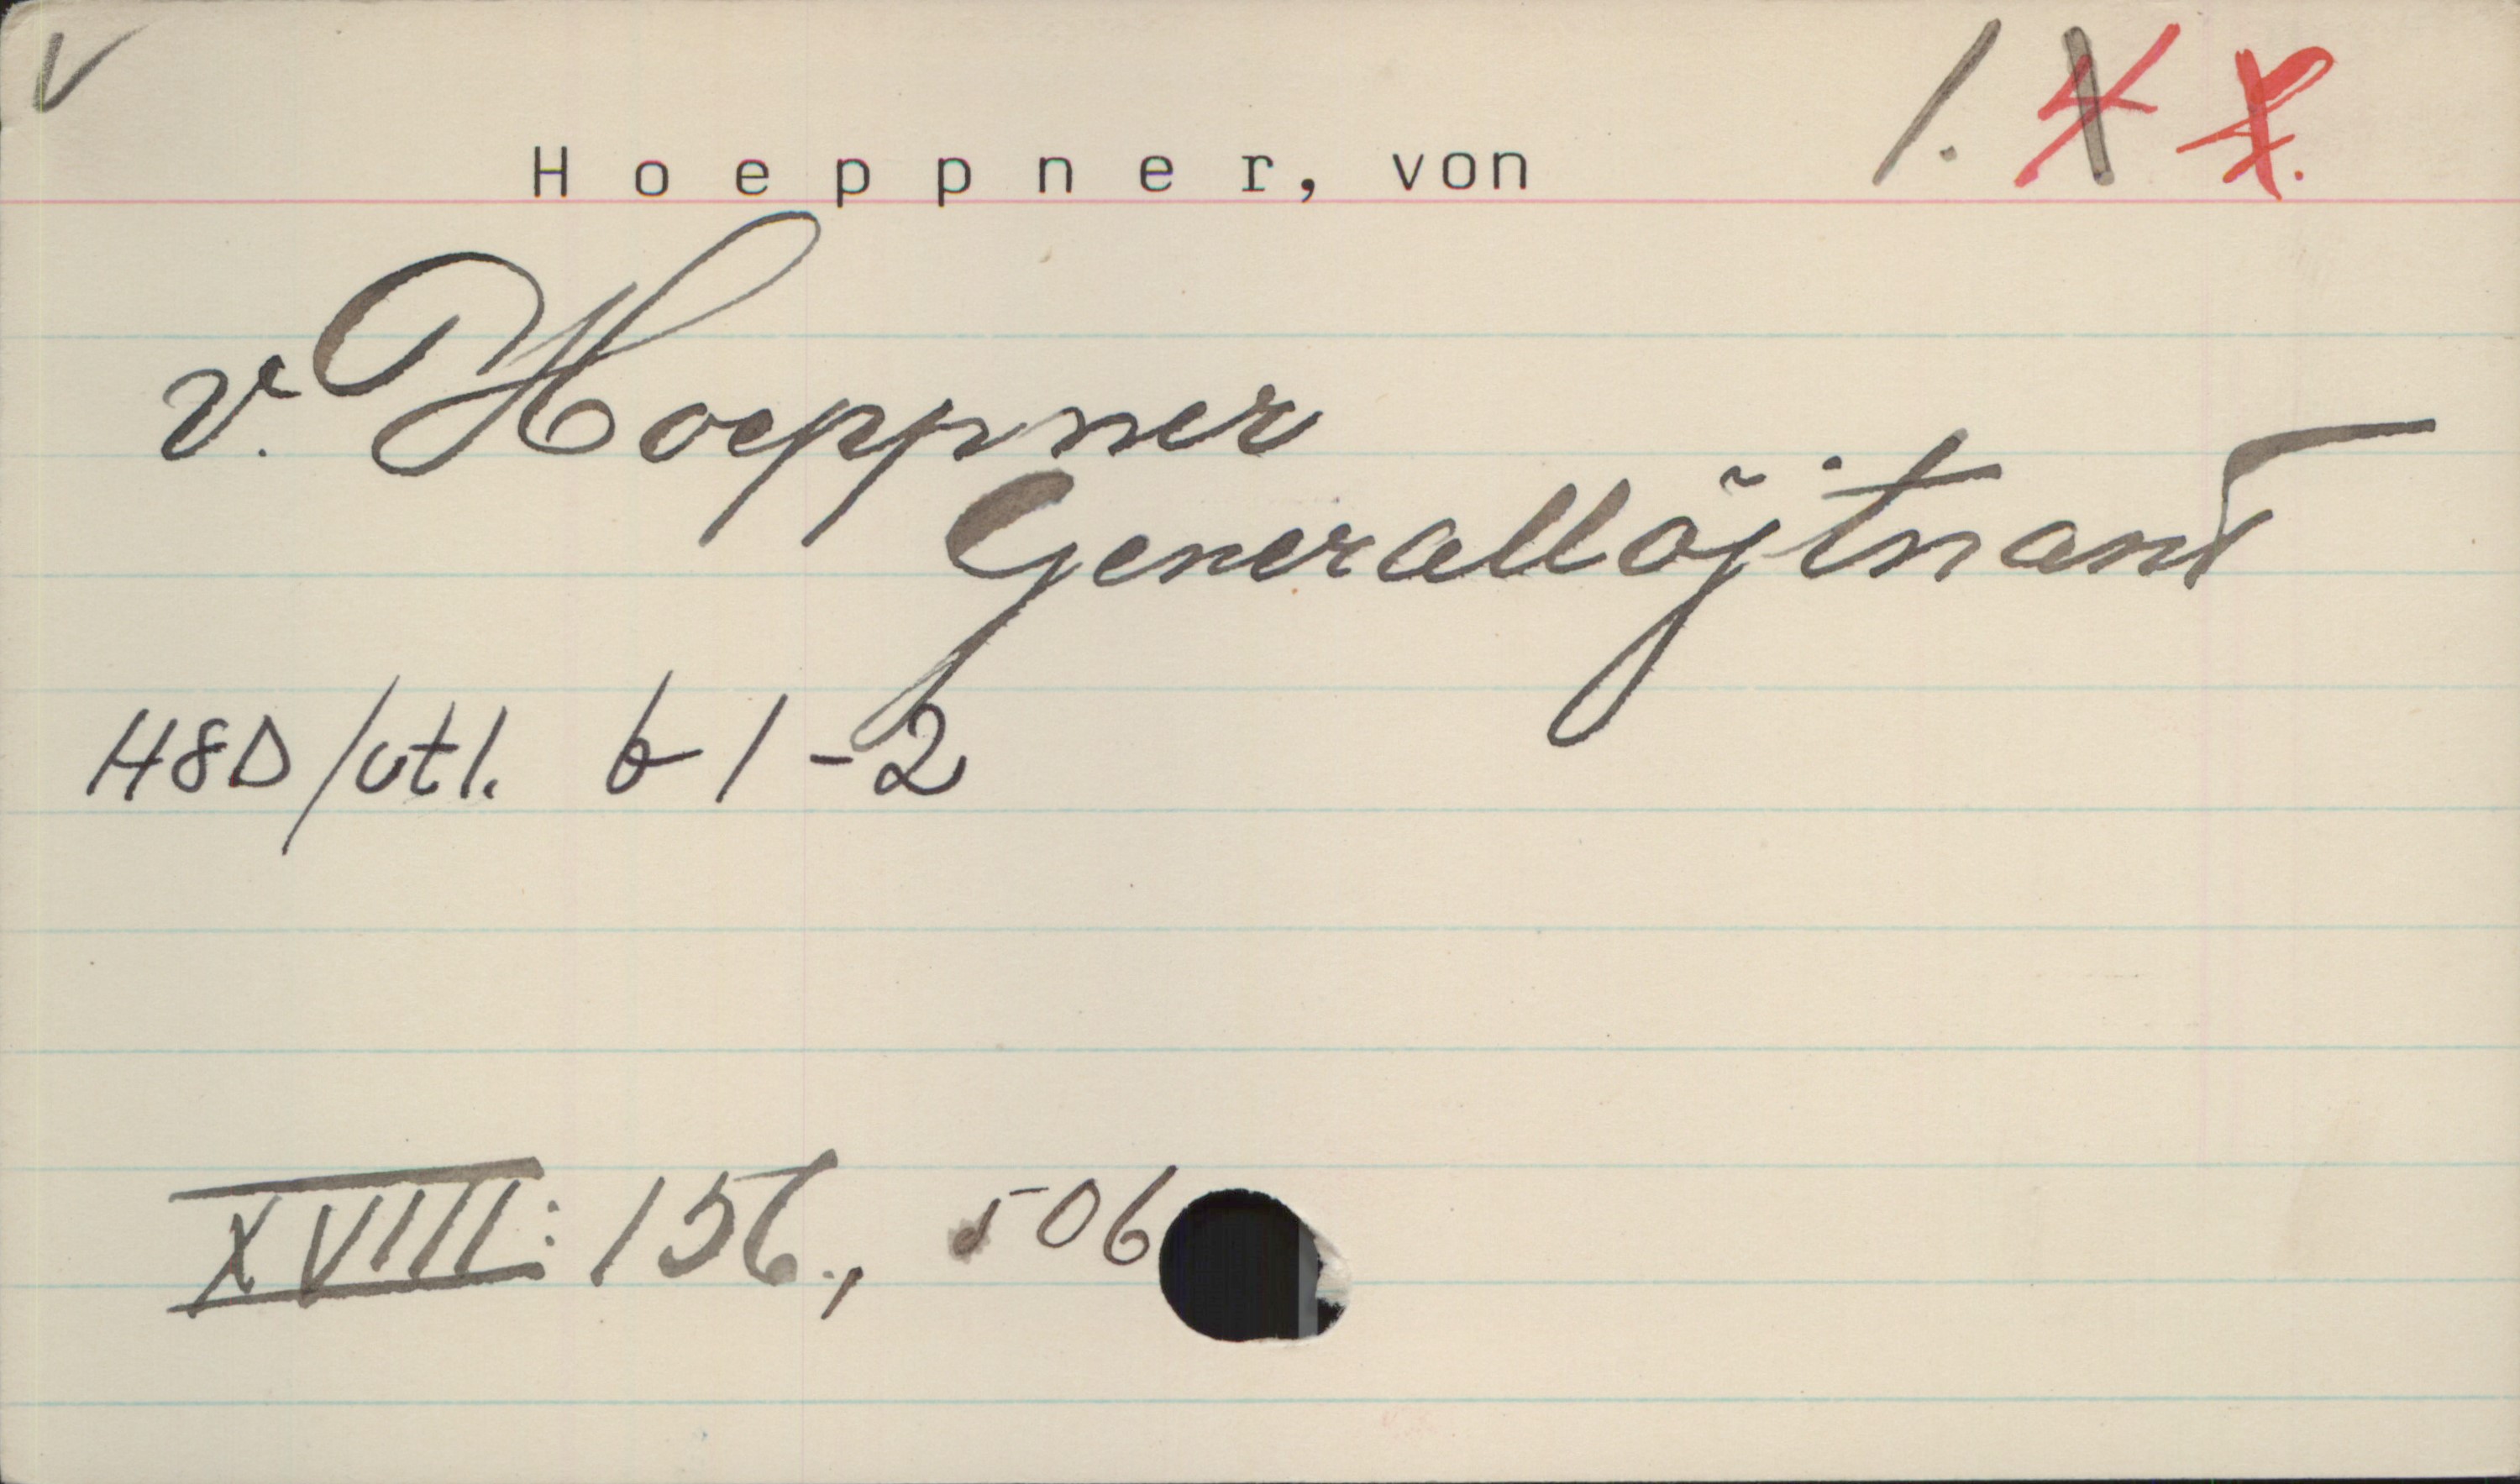 V
1.
Hoeppner, von
v. Hoeppner
Generallöjtnant
H8D/utl. b 1-2
XVIII: 156., 506